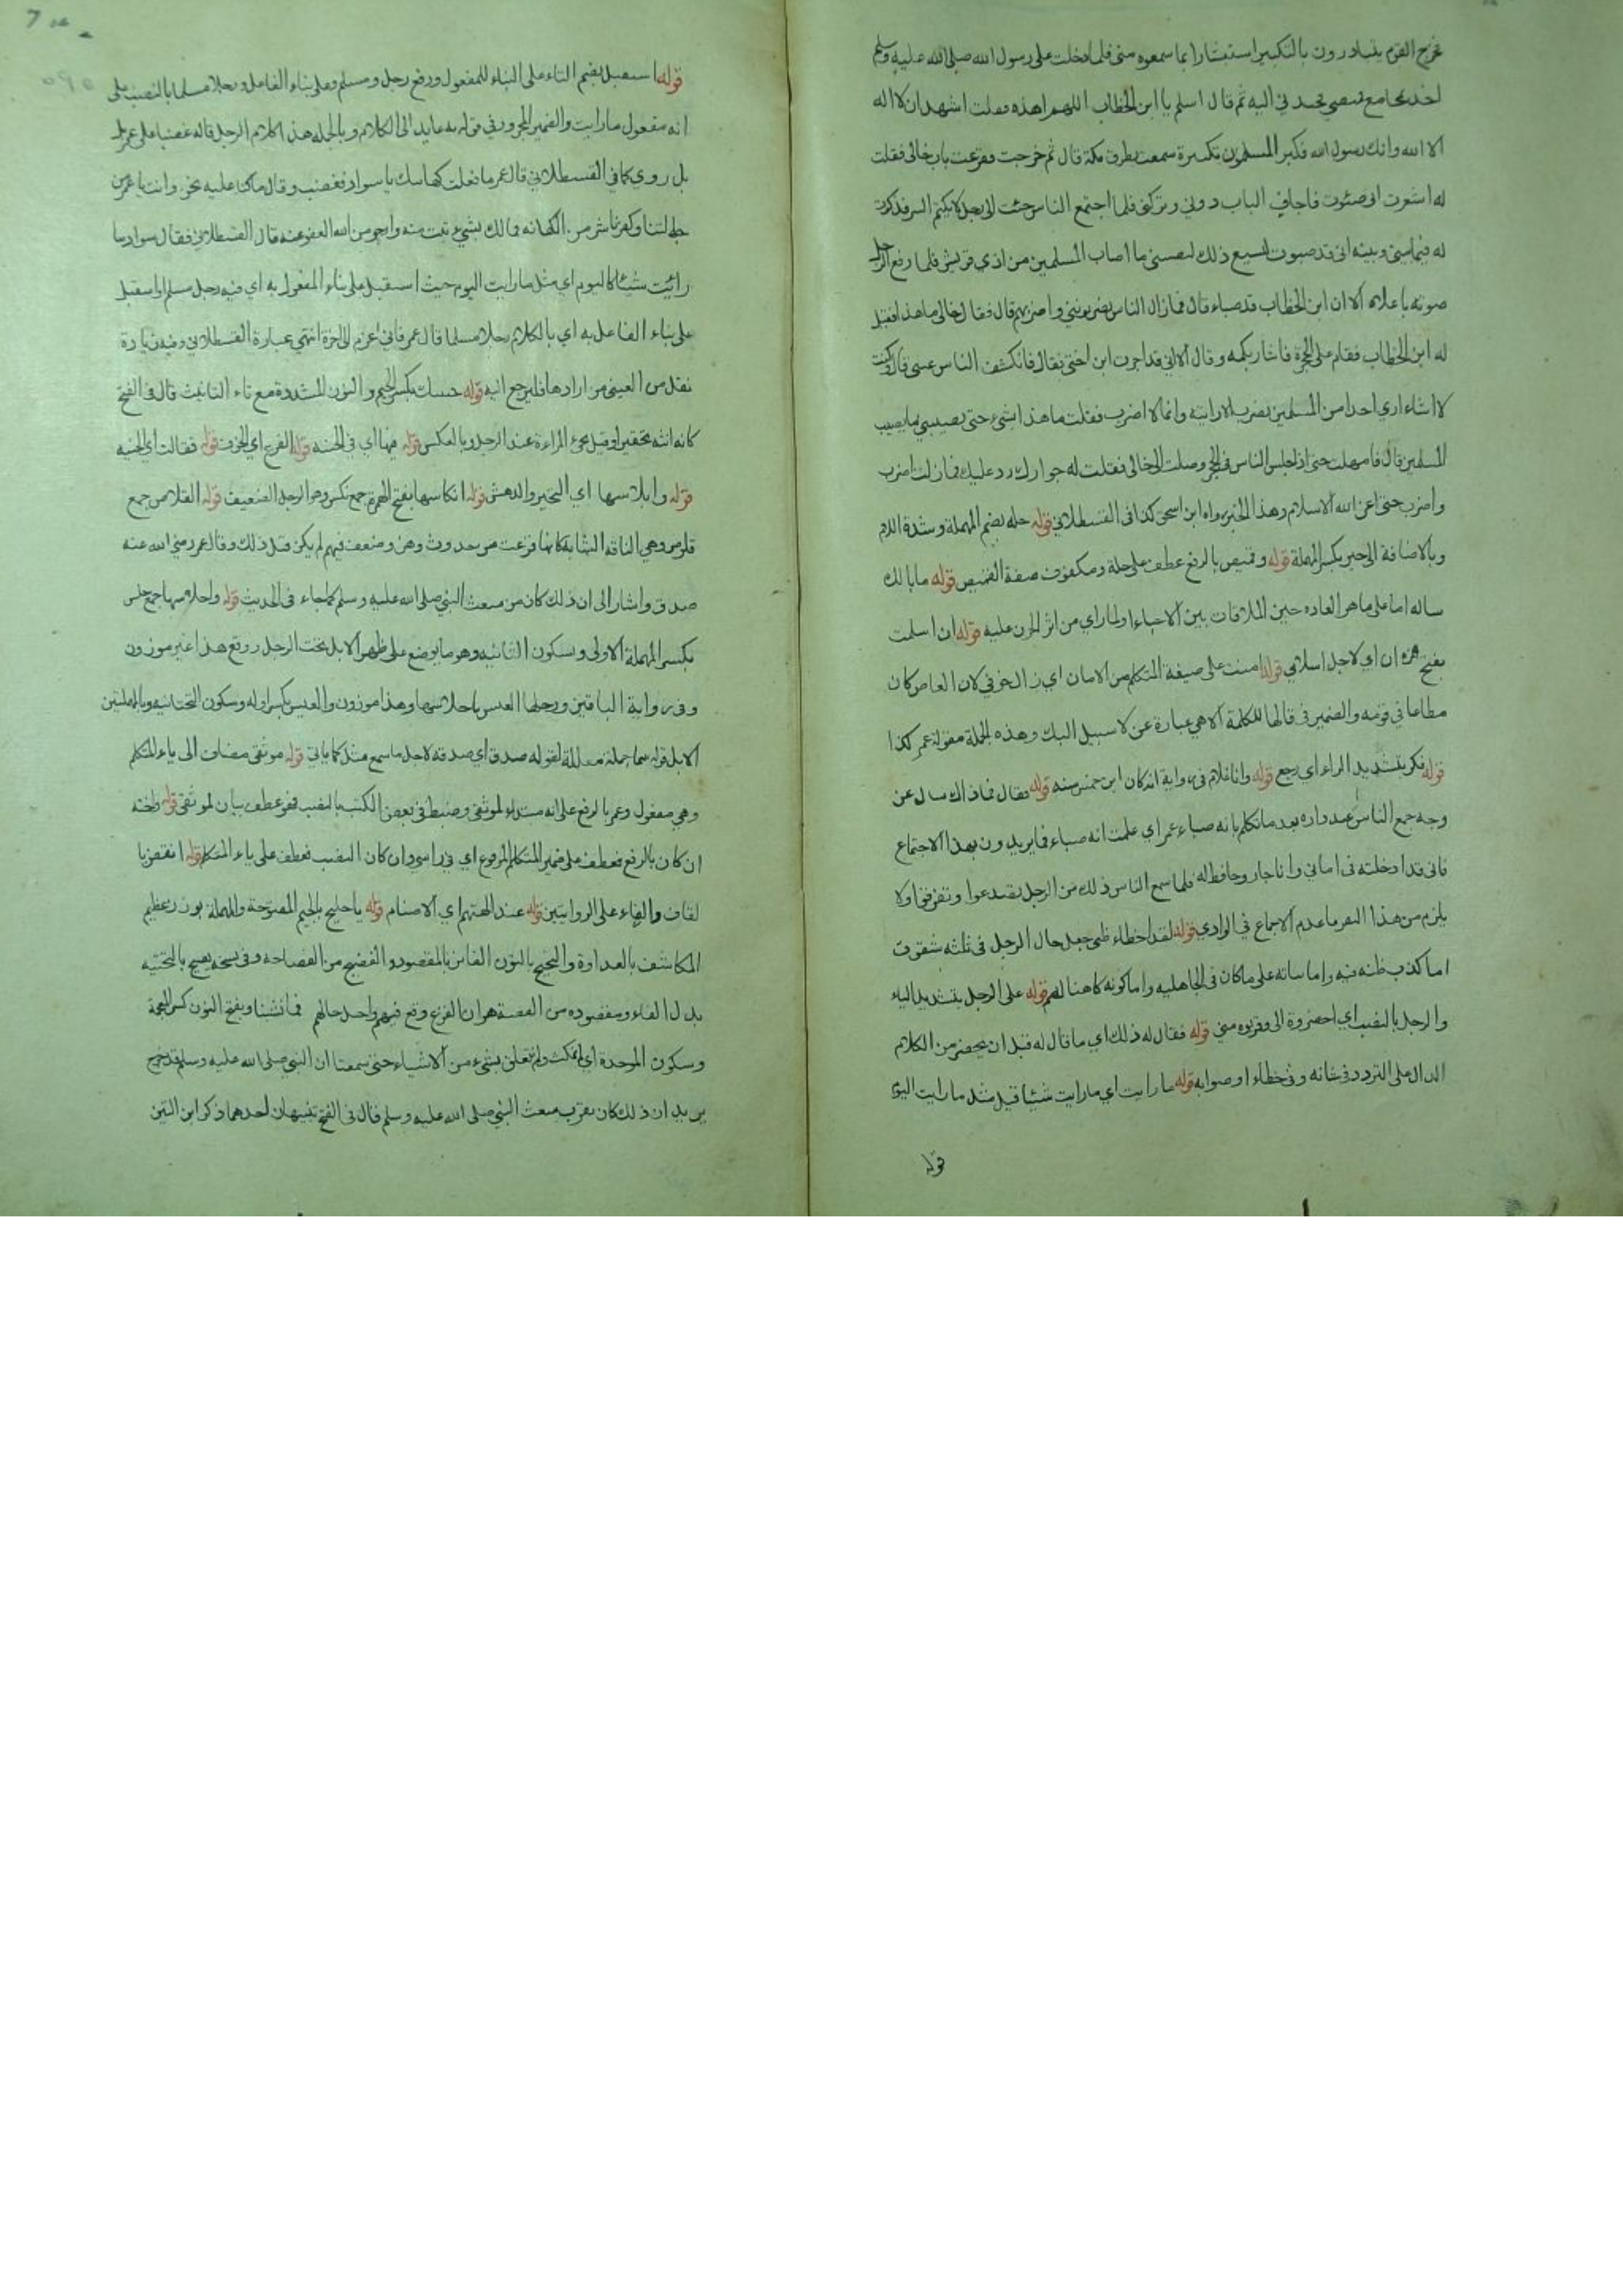 فخرج القوم يتبادرون بالتكبير استبشارا بما سمعوه مني فلما دخلت على رسول الله صلى الله عليه وسلم
اخذ بمجامع قميصي فجذبني اليه ثم قال اسلم يا ابن الخطاب اللهم اهده فقلت اشهد ان لا اله
الا الله وانك رسول الله فكبر المسلمون تكبيرة سمعت بطرق مكة قال ثم خرجت فقرعت باب خالي فقلت
له اشعرت اني صبوت فاجاف الباب دوني وتركني فلما اجتمع الناس جئت الى رجل لا يكتم السر فذكرت
له فيما بيني وبينه اني قد صبوت ليسيع ذلك ليصيبني ما اصاب المسلمين من اذي قريش فلما رفع الرجل
صوته باعلاه الا ان ابن الخطاب قد صباء قال فما زال الناس يضربونني واضربهم قال فقال خالي ما هذا فقيل
له ابن الخطاب فقام على الحجر فاشار بكمه وقال الا اني قد اجرت ابن اختي فقال فانكشف الناس عني قال وكنت
لا اشاء اري احدا من المسلمين يضرب الا رايته وانا لا اضرب فقلت ما هذا بشيء حتى يصيبني ما يصيب
المسلمين قال فامهلت حتى اذا جلس الناس في الحجر وصلت الى خالي فقلت له جوارك رد عليك فما زلت اضرب
واضرب حتى اعز الله الاسلام وهذا الخبر رواه ابن اسحق كذا في القسطلاني قوله حله بضم المهملة وشدة اللام
وبالاضافة الى حبر بكسر المهملة قوله وقميص بالرفع عطف على حلة ومكفوف صفة القميص قوله ما بالك
ساله اما على ما هو العاده حين الملاقات بين الاحباء او لما راي من اثر الحزن عليه قوله ان اسلمت
بفتح همزة ان اي لاجل اسلامي قوله امنت على صيغة المتكلم من الامان اي زال خوفي لان العاص كان
مطاعا في قومه والضمير في قالها للكلمة الا هي عبارة عن لا سبيل اليك وهذه الجملة مقولة عمر كذا
قوله فكر بتشديد الراء اي رجع قوله وانا غلام في رواية انه كان ابن خمس سنه قوله فقال فما ذاك سال عن
وجه جمع الناس عند داره بعد ما تكلم بانه صباء عمر اي علمت انه صباء فما يريدون بهذا الاجتماع
فاني قد ادخلته في اماني وانا جار وحافظ له فلما سمع الناس ذلك من الرجل تصدعوا وتفرقوا ولا
يلزم من هذا التفر ما عدم الاجماع في الوادي قوله لقد اخطاء ظني جعل حال الرجل في ثلثه شقوق
اما كذب ظنه فيه واما ساته على ما كان في الجاهليه واما كونه كاهنا لهم قوله على الرجل بتشديد الياء
والرجل بالنصب اي احضروة الي وقربوه مني قوله فقال له ذلك اي ما قال له قبل ان يحضر من الكلام
الدال على التردد في شانه وفي خطاء او صوابه قوله ما رايت اي ما رايت شيئا قيل مثل ما رايت اليوم
قوله
قوله استقبل بضم التاء على البناء للمفعول ورفع رجل ومسلم وعلى بناء الفاعل ورجلا مسلما بالنصب على
انه مفعول ما رايت والضمير المجرور في قوله به عايد الى الكلام وبالجمله هذا الكلام الرجل قاله غضبا على عمر
بل روي كما في القسطلاني قال عمر ما فعلت كهانتك يا سواد فغضب وقال ما كنا عليه نحن وانت يا عمر من
جاهلتنا وكفرنا شر من الكهانه فمالك بشيء تبت منه وارجو من الله العفو عنه قال القسطلاني فقال سواد ما
رائيت شيئا كاليوم اي مثل ما رايت اليوم حيث استقبل على بناء المفعول به اي فيه رجل مسلم او استقبل
على بناء الفاعل به اي بالكلام رجلا مسلما قال عمر فاني اعزم الى اخرة انتهي عبارة القسطلاني وفيه زيادة
نقل من العيني من ارادها فليرجع اليه قوله جنيتك بكسر الجيم والنون المشددة مع تاء التانيث قال في الفتح
كانه انثه تحقيرا وقيل يجيء المراءة عند الرجل وبالعكس قوله فيها اي في الجنيه قوله الفزع اي الخوف قوله فقالت اي الجنيه
قوله وابلاسها اي التحير والدهش قوله انكاسها بفتح الهمزة جمع نكس وهو الرجل الضعيف قوله القلاص جمع
قلوص وهي الناقه الشابه كانها فزعت من حدوث وهن وضعف فيهم لم يكن قبل ذلك وقال عمر رضي الله عنه
صدق واشار الى ان ذلك كان من مبعث النبي صلى الله عليه وسلم كما جاء في الحديث قوله واحلاسها جمع حلس
بكسر المهملة الاولى وسكون الثانيه وهو ما يوضع على ظهر الابل تحت الرحل ووقع هذا غير موزون
وفي رواية الباقين ورحلها العيس باحلاسها وهذا موزون والعيس بكسر اوله وسكون التحتانيه وبالمهملتين
الابل قوله جملة معللة لقوله صدق اي صدقه لاجل ما سمع مثل كما ياتي قوله موثقي مضاف الى ياء المتكلم
وهي مفعول وعمر بالرفع على انه مبتداء لموثقي وضبط في بعض الكتب بالنصب فهو عطف بيان لموثقي قوله واخته
ان كان بالرفع فعطف على ضمير المتكلم المرفوع اي في راسي وان كان النصب فعطف على ياء المتكلم قوله انقض با
لقاف والفاء على الروايتين قوله عند الهتهم اي الاصنام قوله يا جليح بالجيم المفتوحة والمهملة بوزن عظيم
المكاشف بالعداوة والنجيح بالنون الفائز بالمقصود والفصيح من الفصاحه وفي نسخه يصيح بالتحتيه
بدل الفاء ومقصوده من القصة هو ان الفزع وقع فيهم واحد حالهم فما نشبنا وبفتح النون كسر المعجمة
وسكون الموحدة اي لم نمكث ولم نتعلق بشيء من الاشياء حتى سمعنا ان النبي صلى الله عليه وسلم قد خرج
يريد ان ذلك كان بقرب مبعث النبي صلى الله عليه وسلم قال في الفتح تنبيهان احدهما ذكر ابن التين